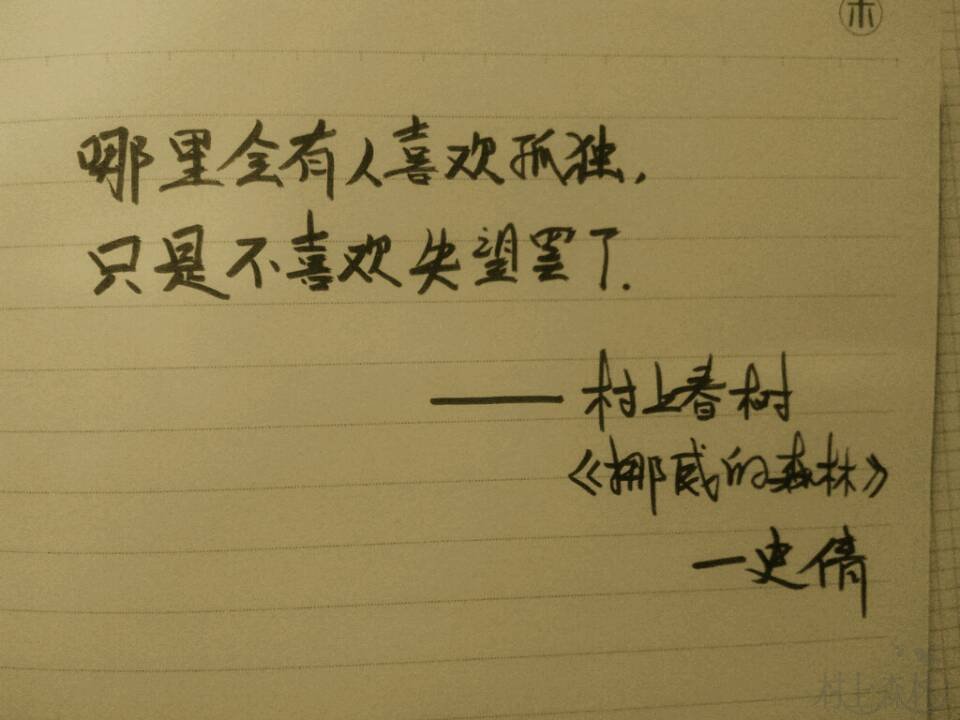 木
哪里会有人喜欢孤独,
只是不喜欢失望罢了.
——村上春树
《挪威的森林》
—史倩
村上森林